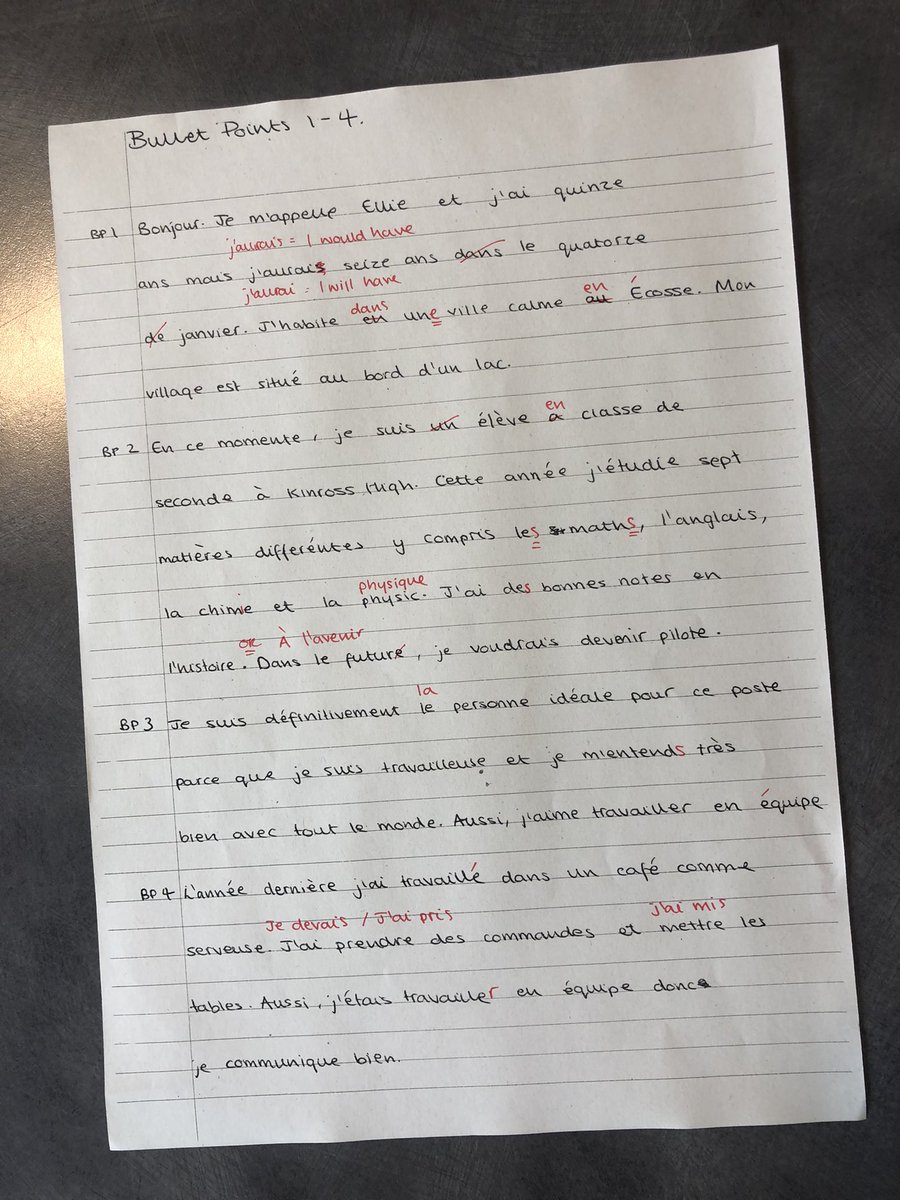 Bullet Points 1-4.
BP1 Bonjour. Je m'appelle Ellie et j'ai quinze
j'aurais = I would have
ans mais j'aurais seize ans dans le quatorze
j'aurai = I will have
dans en
de janvier. J'habite en une ville calme au Écosse. Mon
village est situé au bord d'un lac.
en
BP 2 En ce momente, je suis un élève a classe de
seconde à Kinross High. Cette année j'étudie sept
matières differéntes y compris les maths, l'anglais,
physique
la chimie et la physic. J'ai des bonnes notes en
OR À l'avenir
l'histoire. Dans le future, je voudrais devenir pilote.
la
BP 3 Je suis définitivement le personne idéale pour ce poste
parce que je suis travailleuse et je m'entends très
bien avec tout le monde. Aussi, j'aime travailler en équipe
BP 4 L'année dernière j'ai travaillé dans un café comme
Je devais / J'ai pris j'ai mis
serveuse. J'ai prendre des commandes et mettre les
tables. Aussi, j'étais travailler en équipe donc
je communique bien.